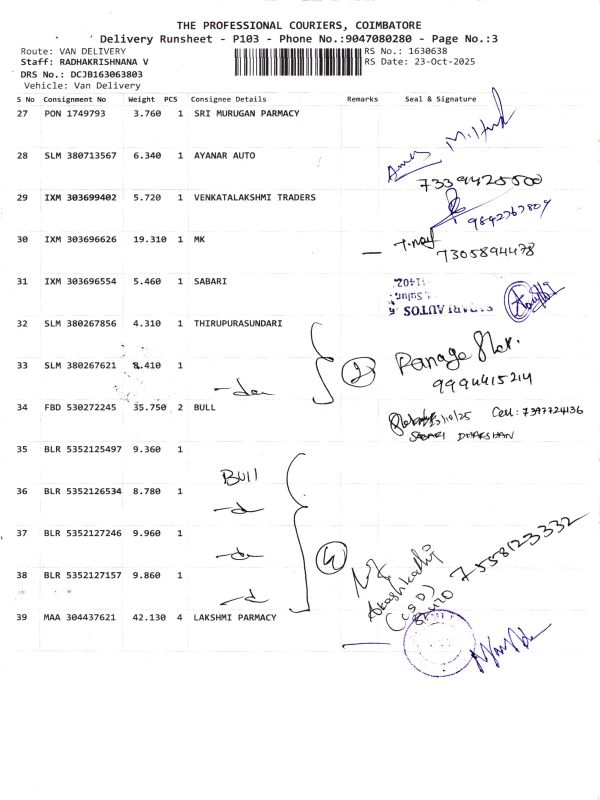 THE PROFESSIONAL COURIERS, COIMBATORE
Delivery Runsheet - P103 - Phone No.:9047080280 - Page No.:3
Route: VAN DELIVERY RS No.: 1630638
Staff: RADHAKRISHNANA V RS Date: 23-Oct-2025
DRS No.: DCJB163063803
Vehicle: Van Delivery
S No Consignment No Weight PCS Consignee Details Remarks Seal & Signature
27 PON 1749793 3.760 1 SRI MURUGAN PARMACY
28 SLM 380713567 6.340 1 AYANAR AUTO
7339425500
29 IXM 303699402 5.720 1 VENKATALAKSHMI TRADERS
9842767809
30 IXM 303696626 19.310 1 MK
7305894478
31 IXM 303696554 5.460 1 SABARI
SABARI AUTOS
32 SLM 380267856 4.310 1 THIRUPURASUNDARI
33 SLM 380267621 8.410 1
2
9994415214
34 FBD 530272245 35.750 2 BULL
Cell: 7397724136
SABARI DHARSHAN
35 BLR 5352125497 9.360 1
Bull
36 BLR 5352126534 8.780 1
37 BLR 5352127246 9.960 1
4
7558123332
38 BLR 5352127157 9.860 1
39 MAA 304437621 42.130 4 LAKSHMI PARMACY